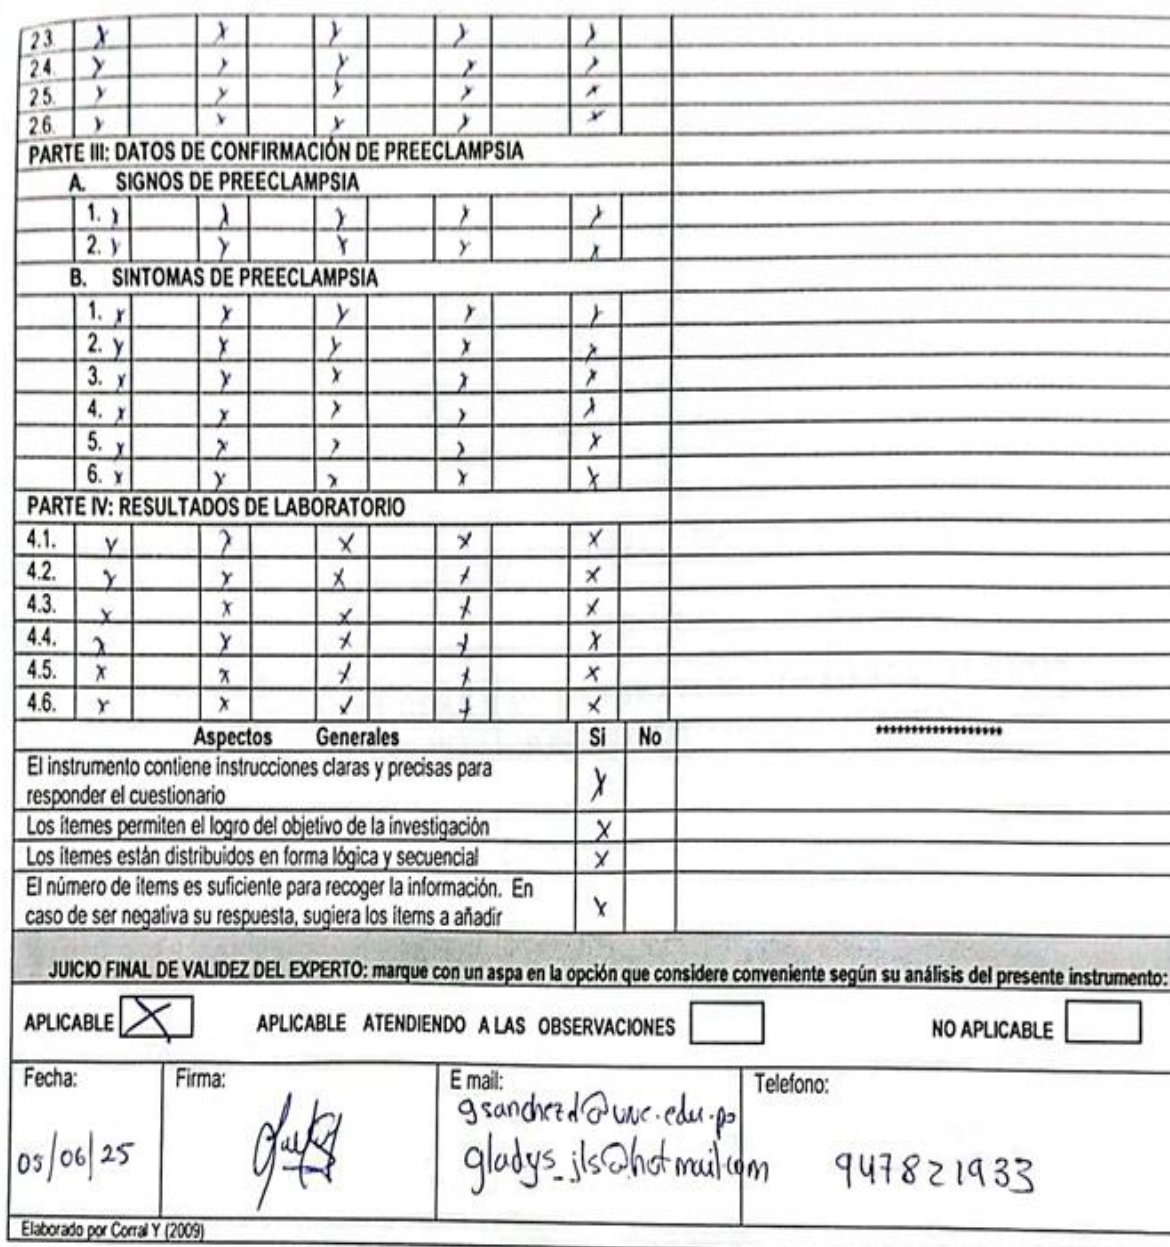 23 x x x x x
24 x x x x x
25. x x x x x
26. x x x x x
PARTE III: DATOS DE CONFIRMACIÓN DE PREECLAMPSIA
A. SIGNOS DE PREECLAMPSIA
1. x x x x x
2. x x x x x
B. SINTOMAS DE PREECLAMPSIA
1. x x x x x
2. x x x x x
3. x x x x x
4. x x x x x
5. x x x x x
6. x x x x x
PARTE IV: RESULTADOS DE LABORATORIO
4.1. x x x x x
4.2. x x x x x
4.3. x x x x x
4.4. x x x x x
4.5. x x x x x
4.6. x x x x x
Aspectos Generales Si No ******************
El instrumento contiene instrucciones claras y precisas para
responder el cuestionario x
Los ítemes permiten el logro del objetivo de la investigación x
Los ítemes están distribuidos en forma lógica y secuencial x
El número de ítems es suficiente para recoger la información. En
caso de ser negativa su respuesta, sugiera los ítems a añadir x
JUICIO FINAL DE VALIDEZ DEL EXPERTO: marque con un aspa en la opción que considere conveniente según su análisis del presente instrumento:
APLICABLE X APLICABLE ATENDIENDO A LAS OBSERVACIONES NO APLICABLE
Fecha: Firma: E mail: Telefono:
gsanchezd@unc.edu.pe
05/06/25 gladys_jls@hotmail.com 947821933
Elaborado por Corral Y (2009)